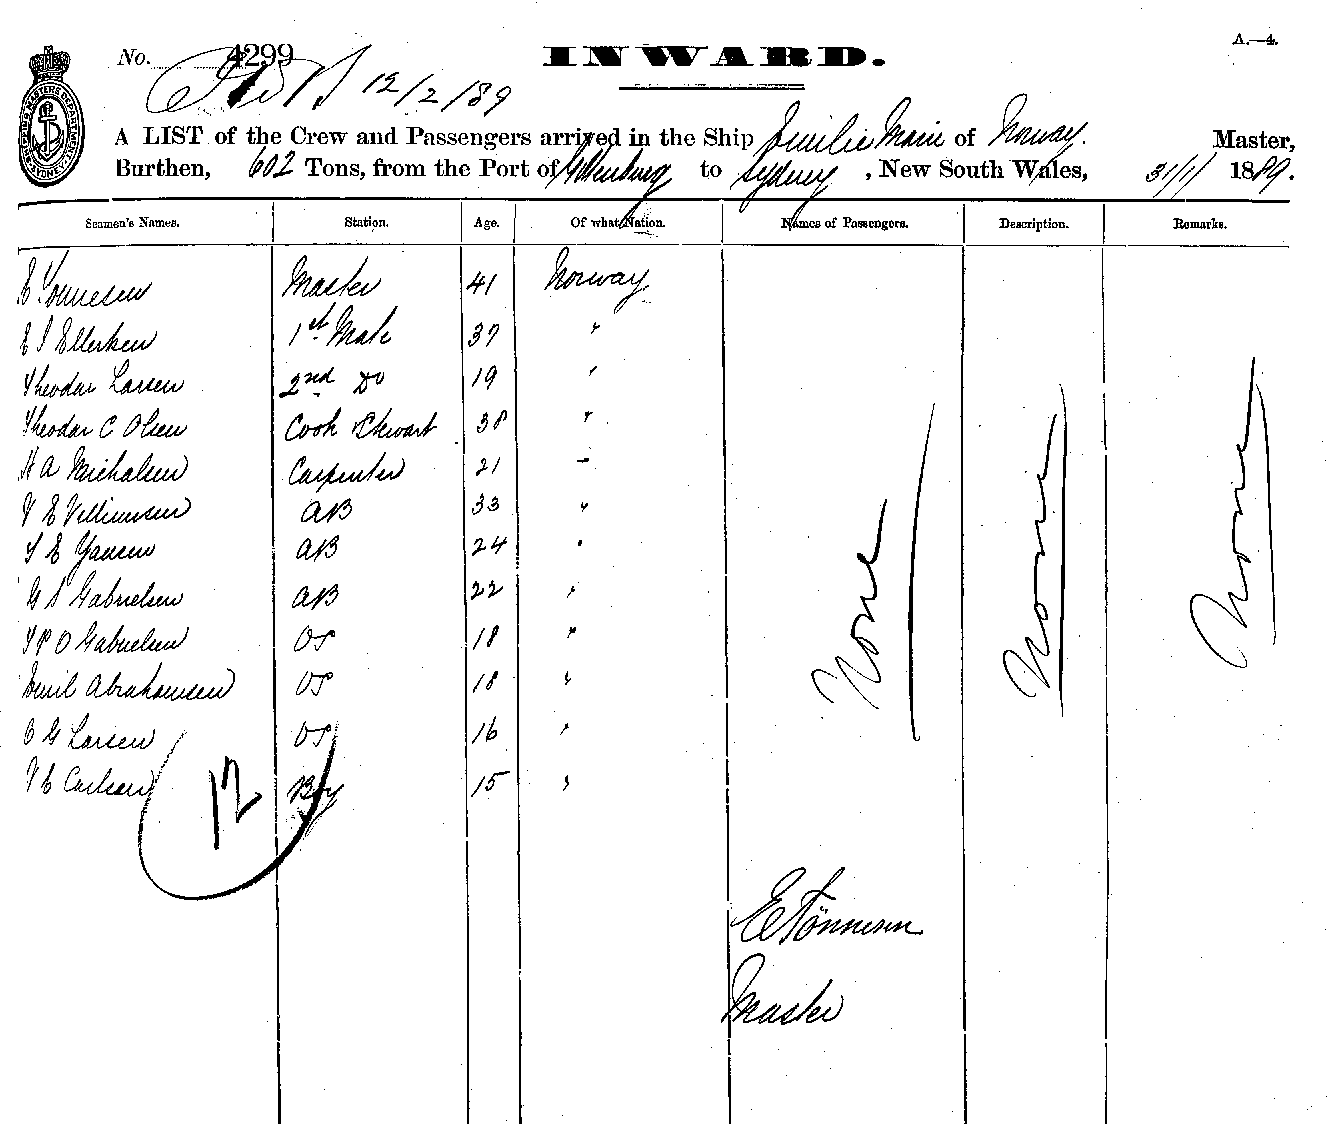 A.—4.
No. 4299 INWARD.
12/2/89
A LIST of the Crew and Passengers arrived in the Ship Emilie Marie of Norway. Master,
Burthen, 602 Tons, from the Port of to Sydney, New South Wales, 31/1/ 1889.
Seamen's Names. Station. Age. Of what Nation. Names of Passengers. Description. Remarks.
E Tonnesen Master 41 Norway
E Ellerksen 1st Mate 37 "
Theodor Larsen 2nd Do 19 "
Theodor C Olsen Cook & Stewart 38 "
A Michalsen Carpenter 21 "
E Villiumsen AB 33 "
E Yansen AB 24 "
G S Gabrielsen AB 22 "
O Gabrielsen OS 18 "
Emil Abrahamsen OS 18 "
O G Larsen OS 16 "
E Carlsen Boy 15 "
None None None
12
E Tönnesen
Master
SHIPPING MASTERS DEPARTMENT SYDNEY